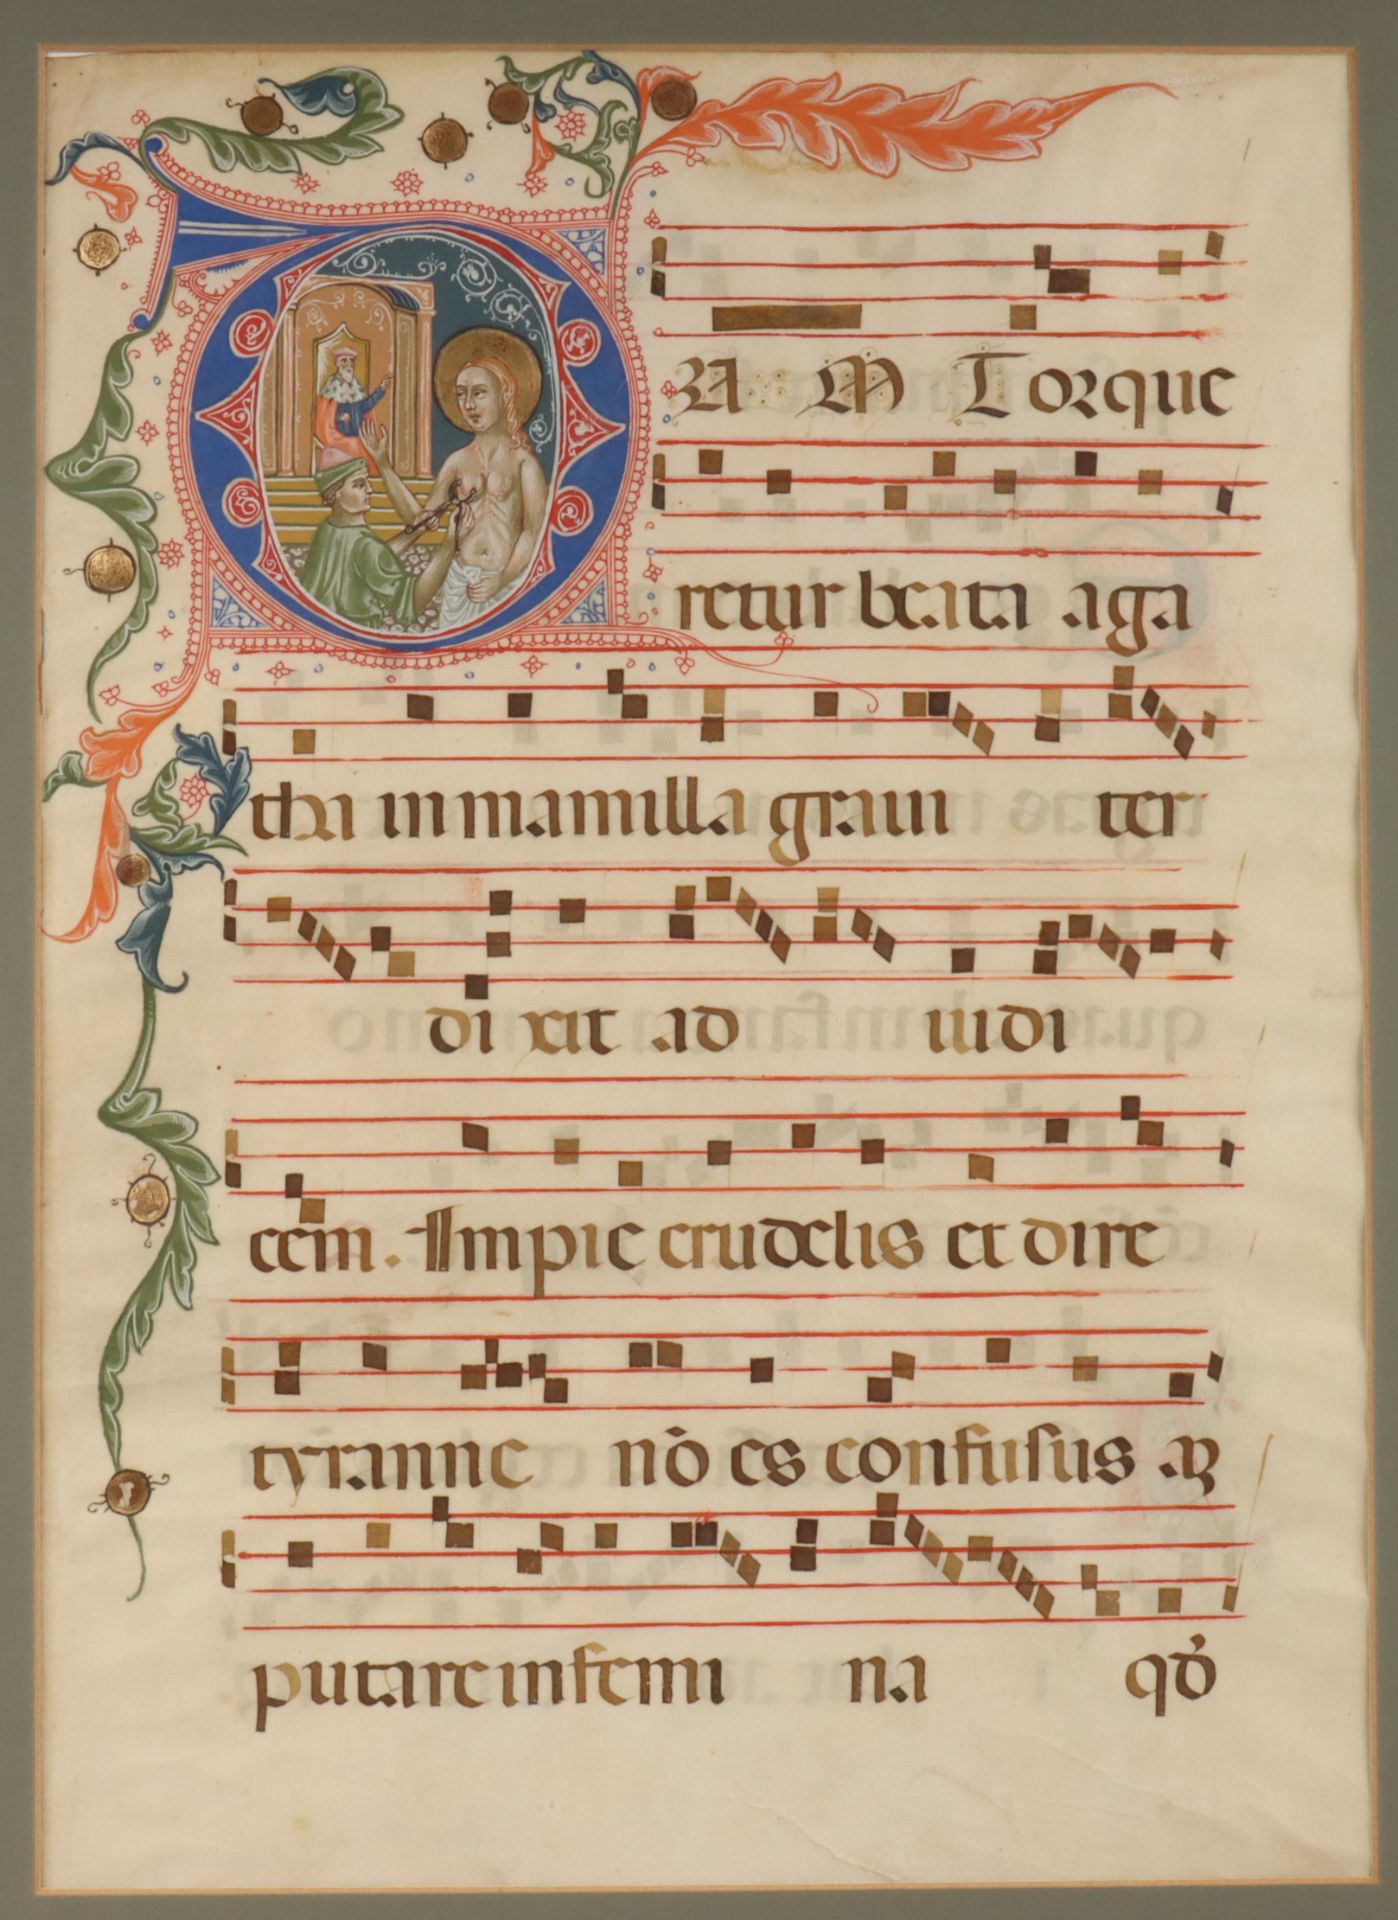 DUM Torque
retur beata aga
tha in mamilla graui ter
di xit ad iudi
cem. Impie crudelis et dire
tyranne nō es confusus am
putare in femi na qđ